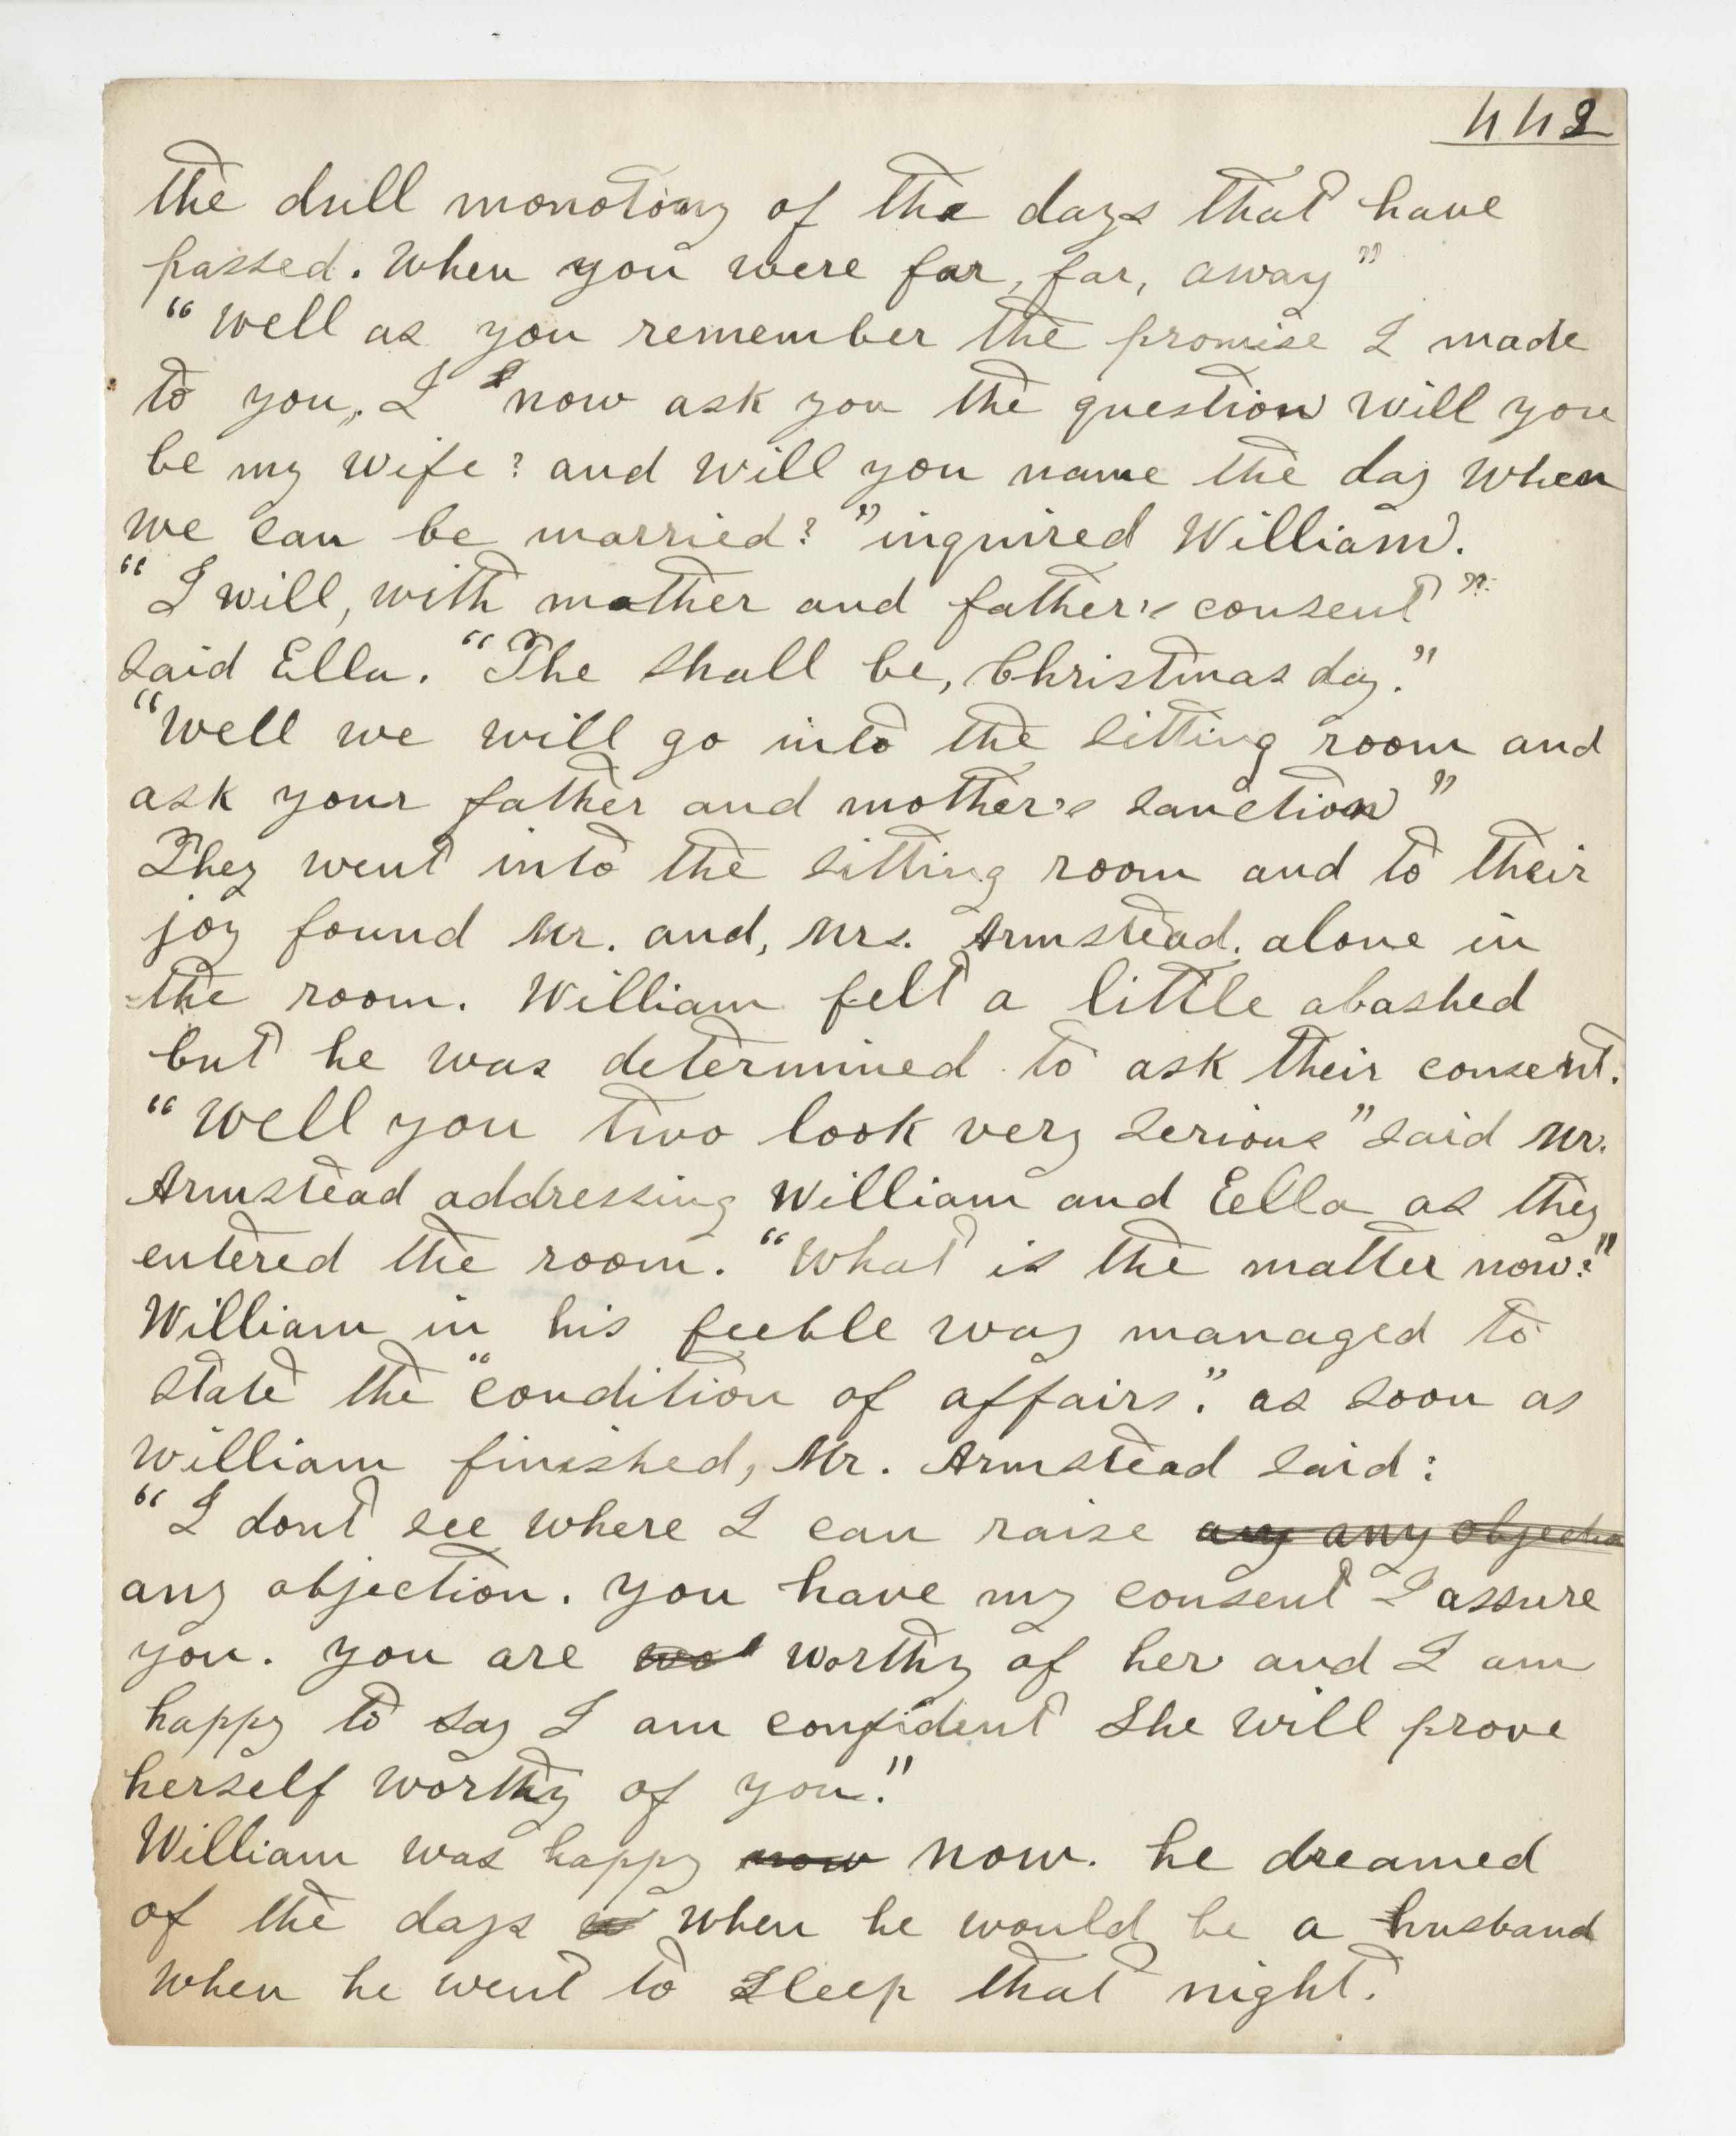 442
the dull monotony of the days that have
passed. When you were far, far, away"
"Well as you remember the promise I made
to you, I now ask you the question will you
be my wife? and will you name the day when
we can be married?" inquired William.
"I will, with mother and father's consent"
said Ella. "The shall be, Christmas day."
"Well we will go into the sitting room and
ask your father and mother's sanction"
They went into the sitting room and to their
joy found Mr. and, Mrs. Armstead. alone in
the room. William felt a little abashed
but he was determined to ask their consent.
"Well you two look very serious" said Mr.
Armstead addressing William and Eella as they
entered the room. "What is the matter now?"
William in his feeble way managed to
state the "condition of affairs". as soon as
William finished, Mr. Armstead said:
"I dont see where I can raise any any objection
any objection. You have my consent I assure
you. You are wo worthy of her and I am
happy to say I am confident She will prove
herself worthy of you."
William was happy now now. he dreamed
of the days w when he would be a husband
when he went to sleep that night.